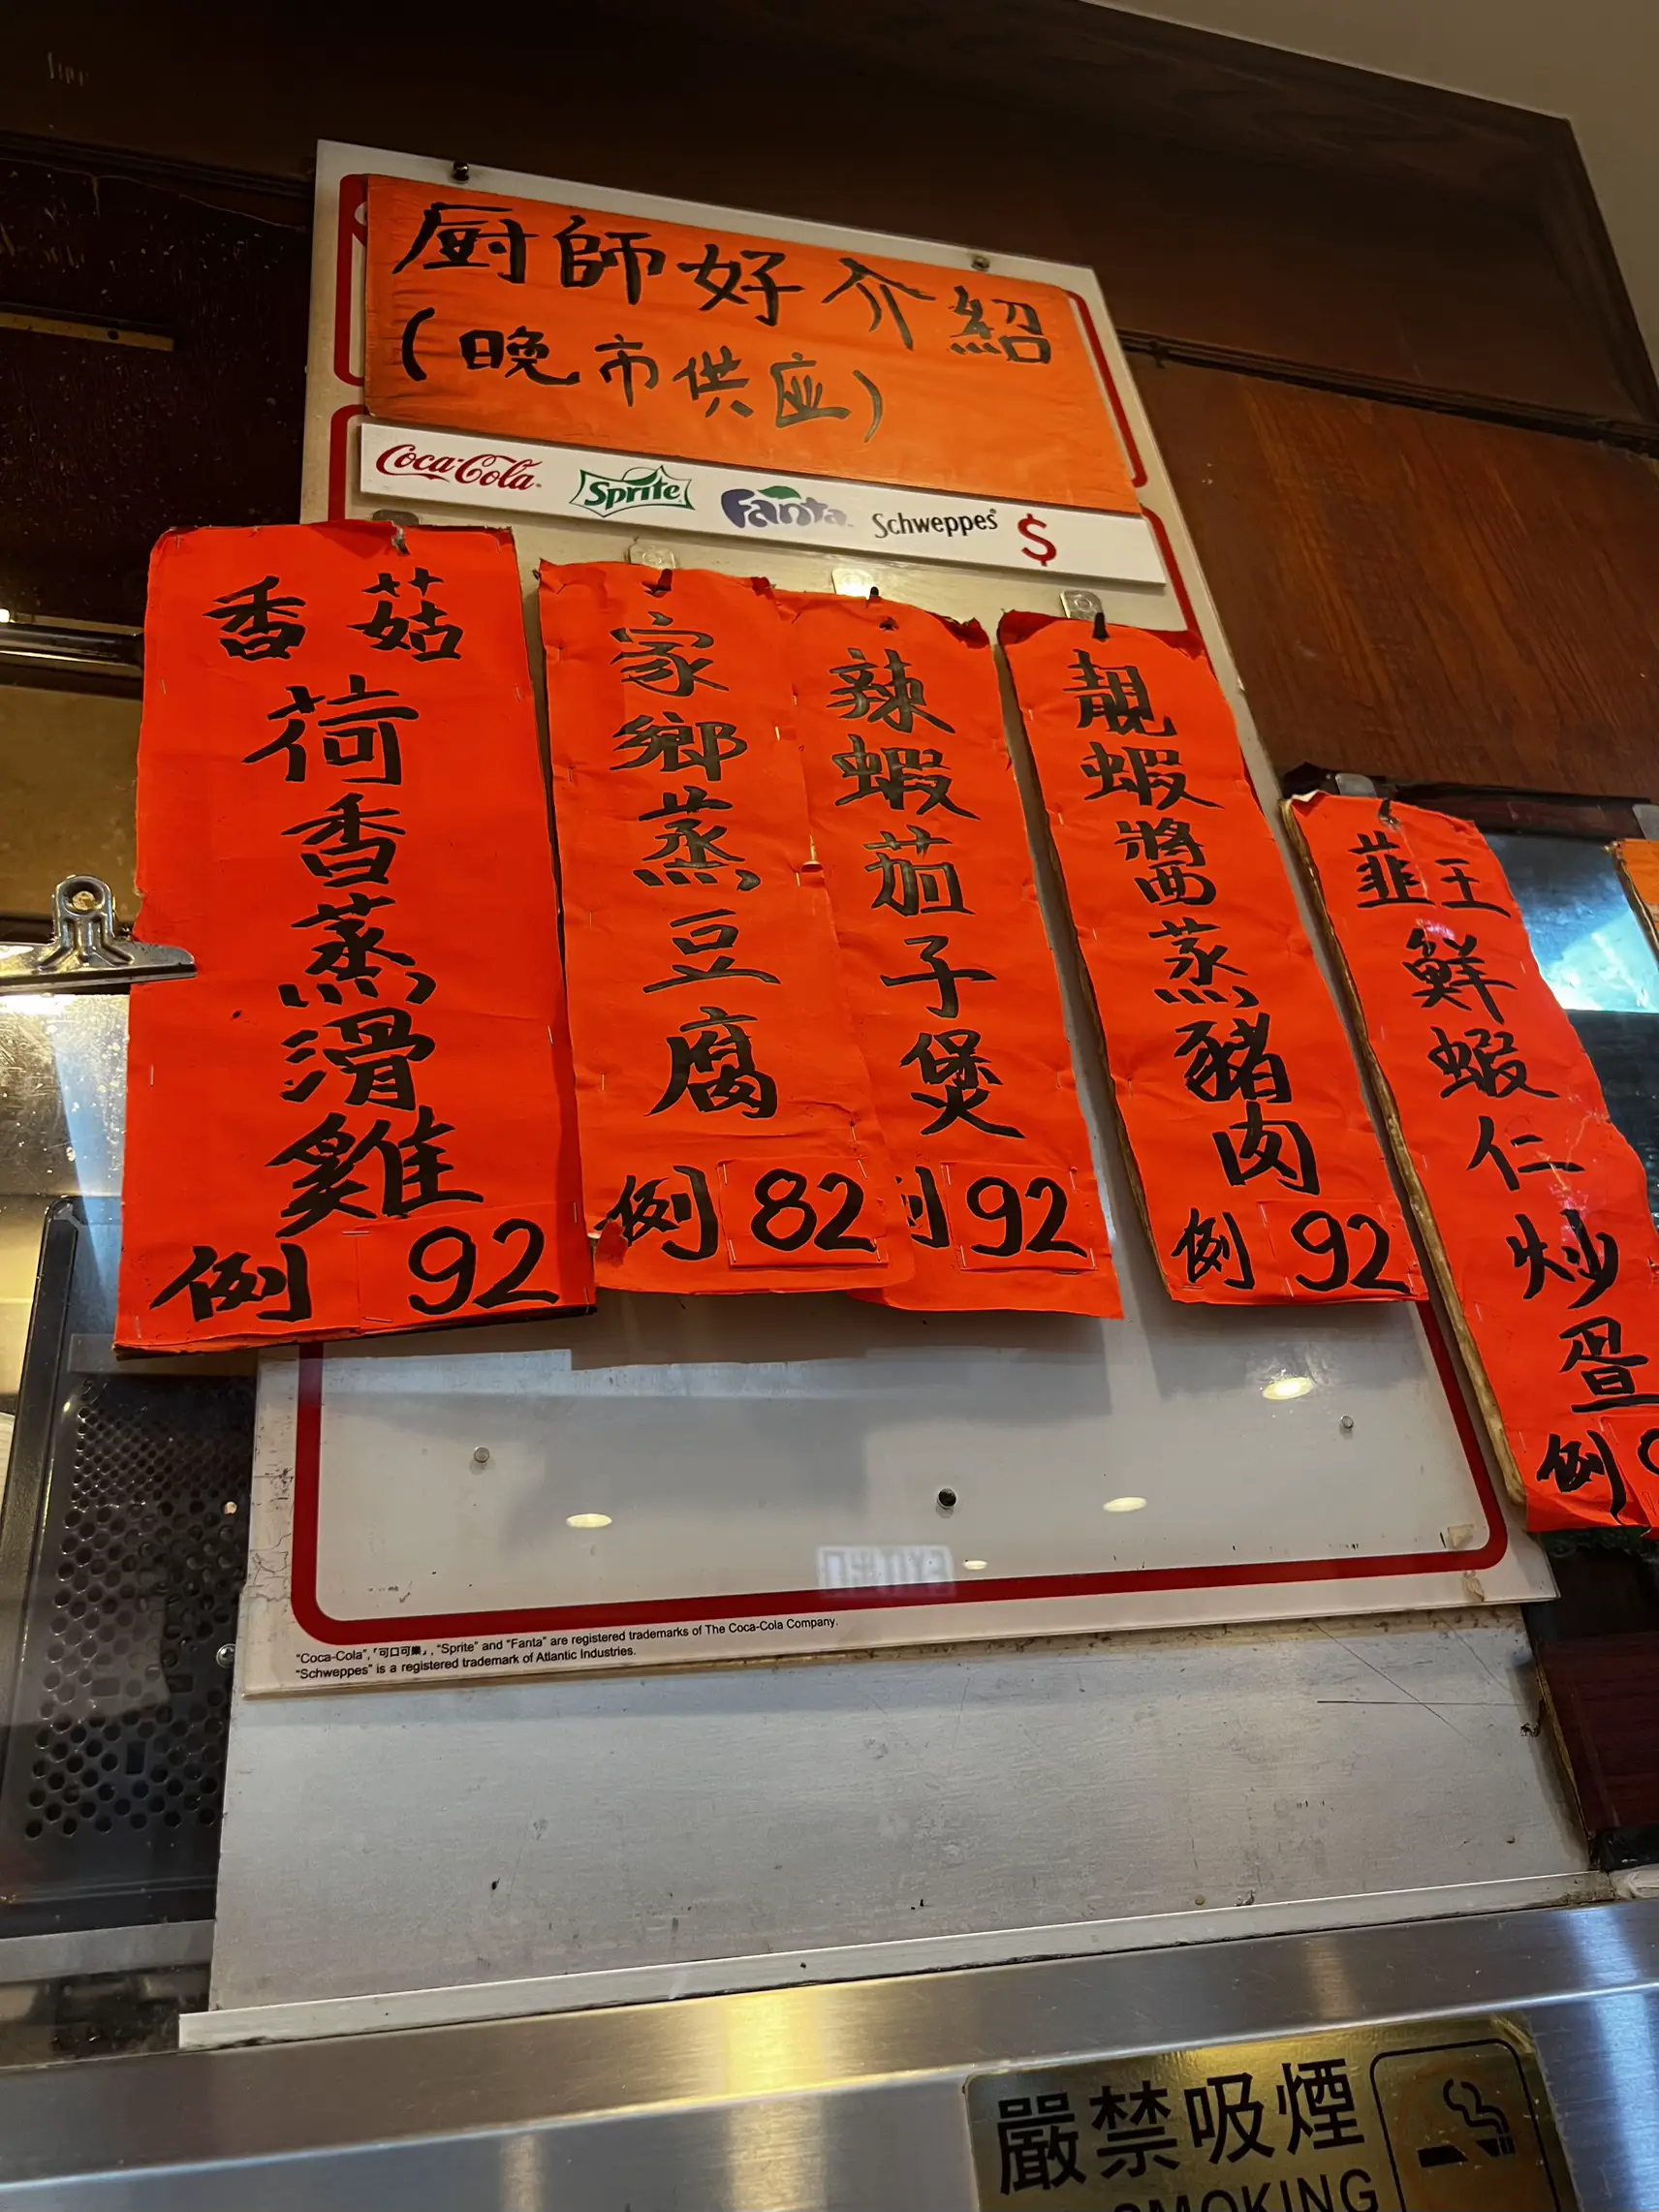 厨師好介紹
(晚市供应)
Coca-Cola Sprite Fanta Schweppes $
香菇
荷香蒸滑雞
例 92
家鄉蒸豆腐
例 82
辣蝦茄子煲
例 92
靚蝦醬蒸豬肉
例 92
韮王
鮮蝦仁炒蛋
例
"Coca-Cola",「可口可樂」, "Sprite" and "Fanta" are registered trademarks of The Coca-Cola Company.
"Schweppes" is a registered trademark of Atlantic Industries.
嚴禁吸煙
SMOKING